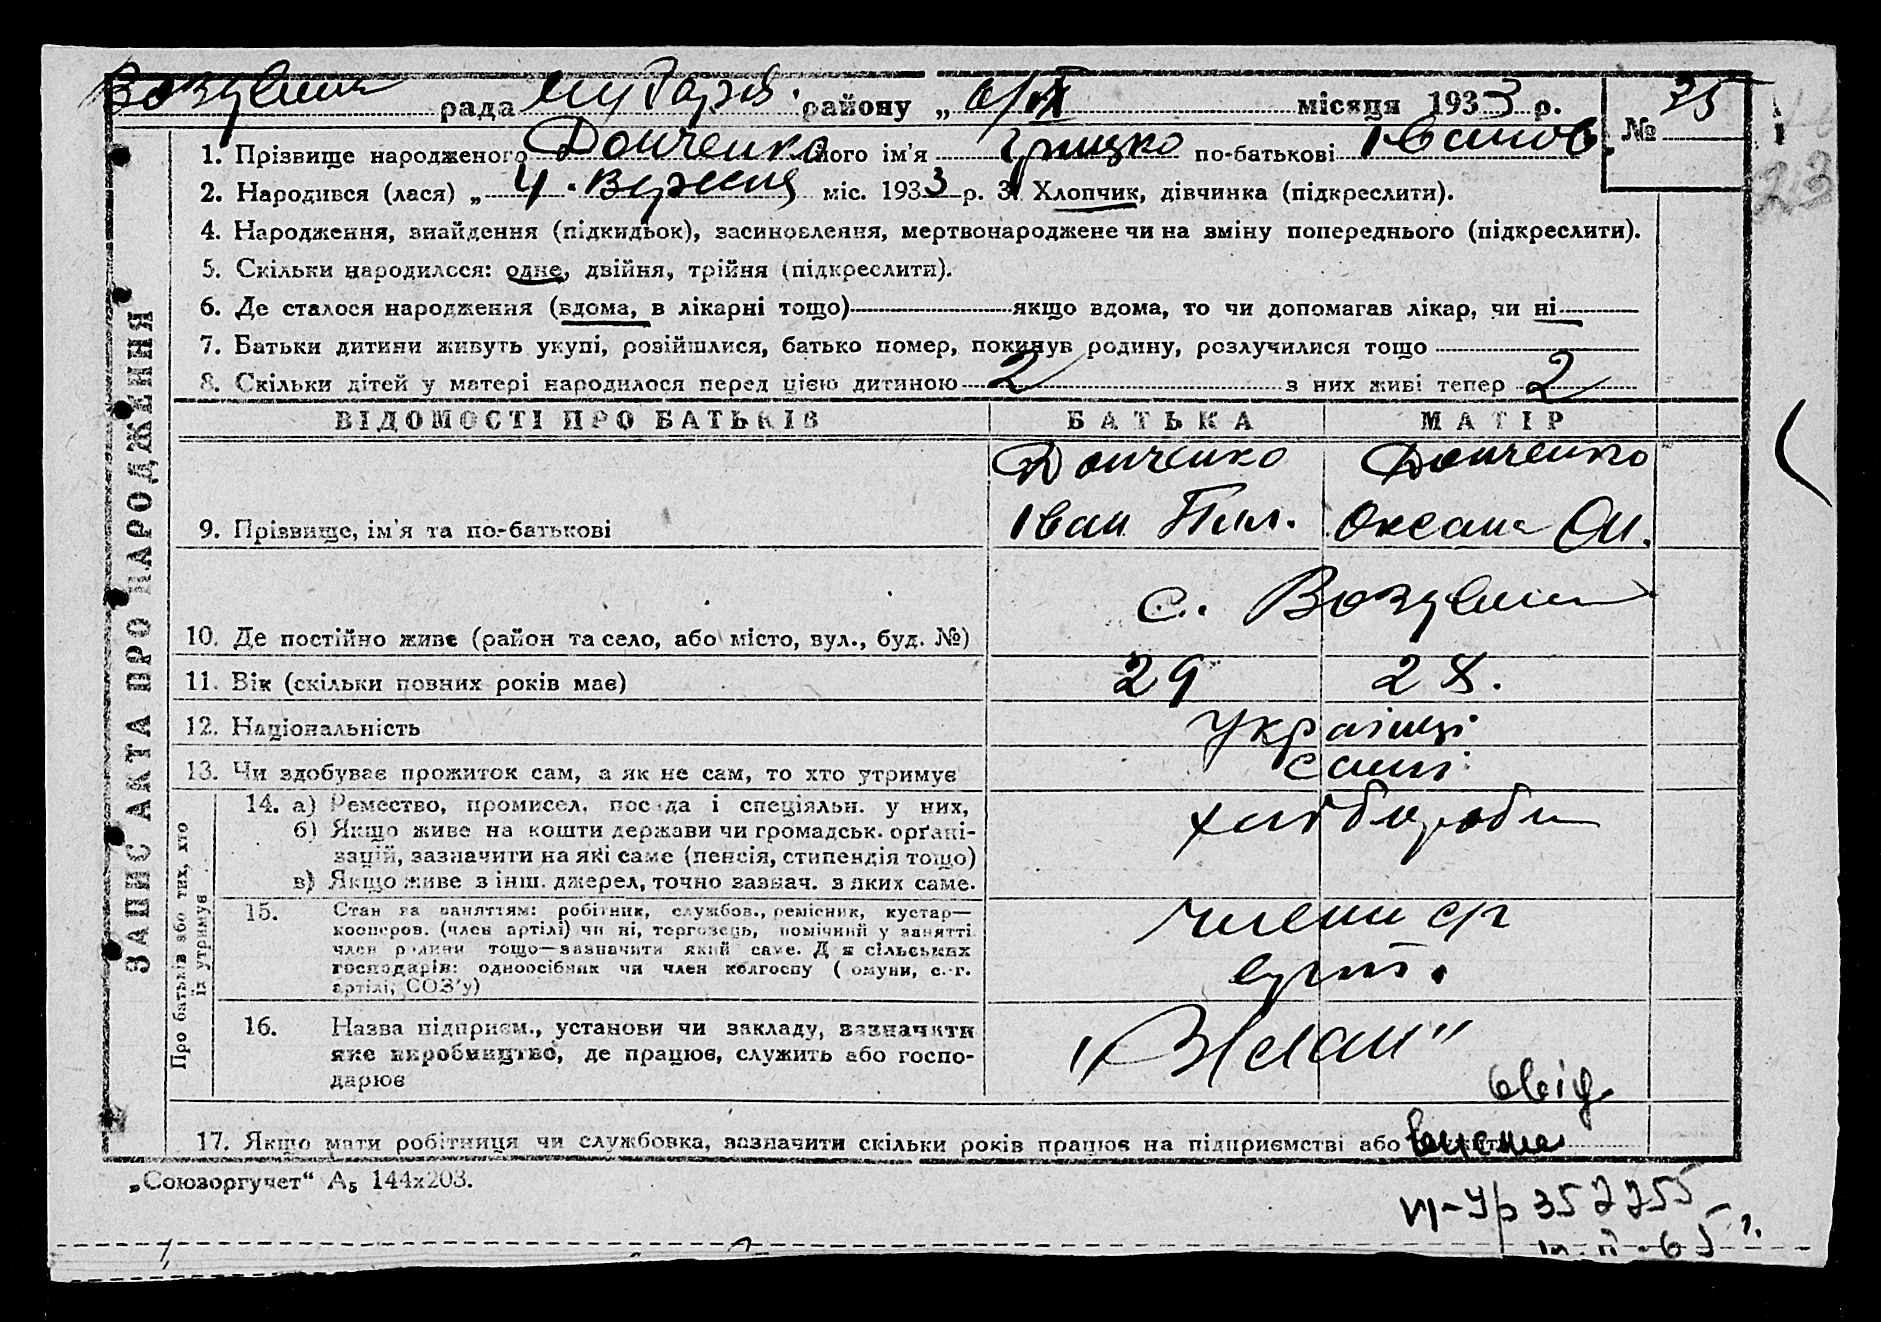 рада района „ 6/IX місяця 1933 р. № 35
1. Прізвище народженого Донченко його ім'я Грицко по-батькові Іванов.
2. Народився (лася) „ 4 . Вересня міс. 1933 р. 3. Хлопчик, дівчинка (підкреслити).
23
4. Народження, знайдення (підкидьок), засиновлення, мертвонароджене чи на зміну попереднього (підкреслити).
5. Скільки народилося: одне, двійня, трійня (підкреслити).
6. Де сталося народження (вдома, в лікарні тощо) якщо вдома, то чи допомагав лікар, чи ні
7. Батьки дитини живуть укупі, розійшлися, батько помер, покинув родину, розлучилися тощо
8. Скільки дітей у матері народилося перед цією дитиною 2 з них живі тепер 2
ЗАПИС АКТА ПРО НАРОДЖЕННЯ
ВІДОМОСТІ ПРО БАТЬКІВ БАТЬКА МАТІР
Донченко Донченко
9. Прізвище, ім'я та по-батькові Іван Пил. Оксана
10. Де постійно живе (район та село, або місто, вул., буд. №) с.
11. Вік (скільки повних років має) 29 28.
12. Національність Українці
13. Чи здобуває прожиток сам, а як не сам, то хто утримує самі
Про батьків або тих, хто
їх утримує
14. а) Ремество, промисел, посада і спеціяльн. у них, хлібороби
б) Якщо живе на кошти держави чи громадськ. орґані-
зацій, зазначити на які саме (пенсія, стипендія тощо)
в) Якщо живе з інш. джерел, точно зазнач. з яких саме.
15. Стан за заняттям: робітник, службов., ремісник, кустар—
кооперов. (член артілі) чи ні, торговець, помічний у занятті
член родини тощо—зазначити який саме. Для сільських
господарів: одноосібник чи член колгоспу (комуни, с.-г.
артілі, СОЗ'у)
члени с/г
арт.
16. Назва підприєм., установи чи закладу, зазначити
яке виробництво, де працює, служить або госпо-
дарює
17. Якщо мати робітниця чи службовка, зазначити скільки років працює на підприємстві або
„Союзоргучет“ А5 144х203.